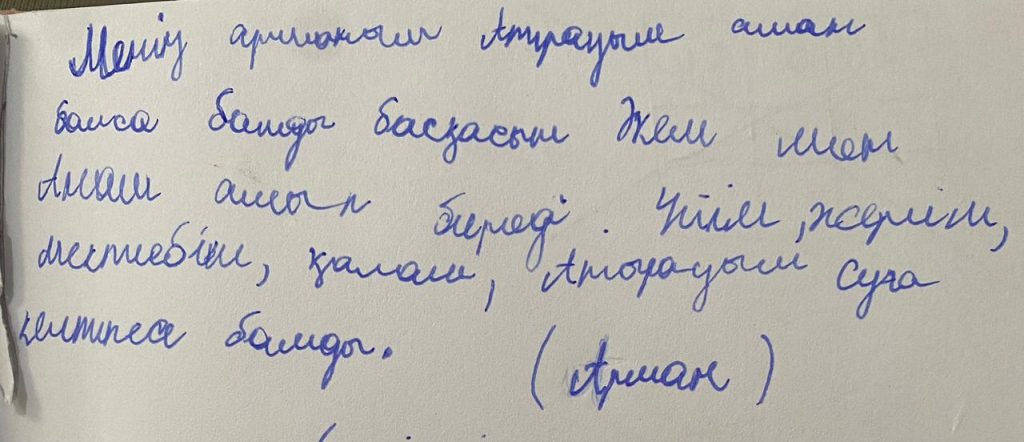 Менің арманым Атрауым аман
болса болды басқасын Әкем мен
Анам алып береді. Үйім, жерім,
мектебім, қалам, Атырауым суға
кетпесе болды.
(Арман)